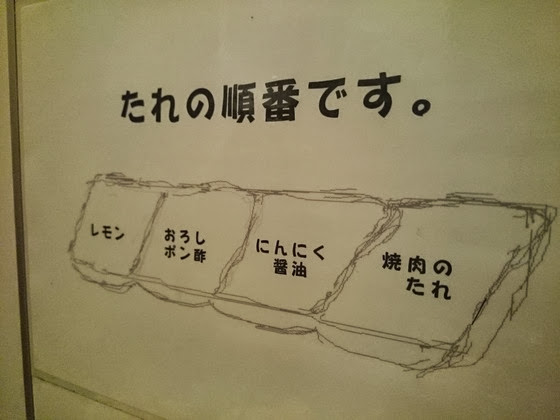 たれの順番です。
レモン
おろし
ポン酢
にんにく
醤油
焼肉の
たれ